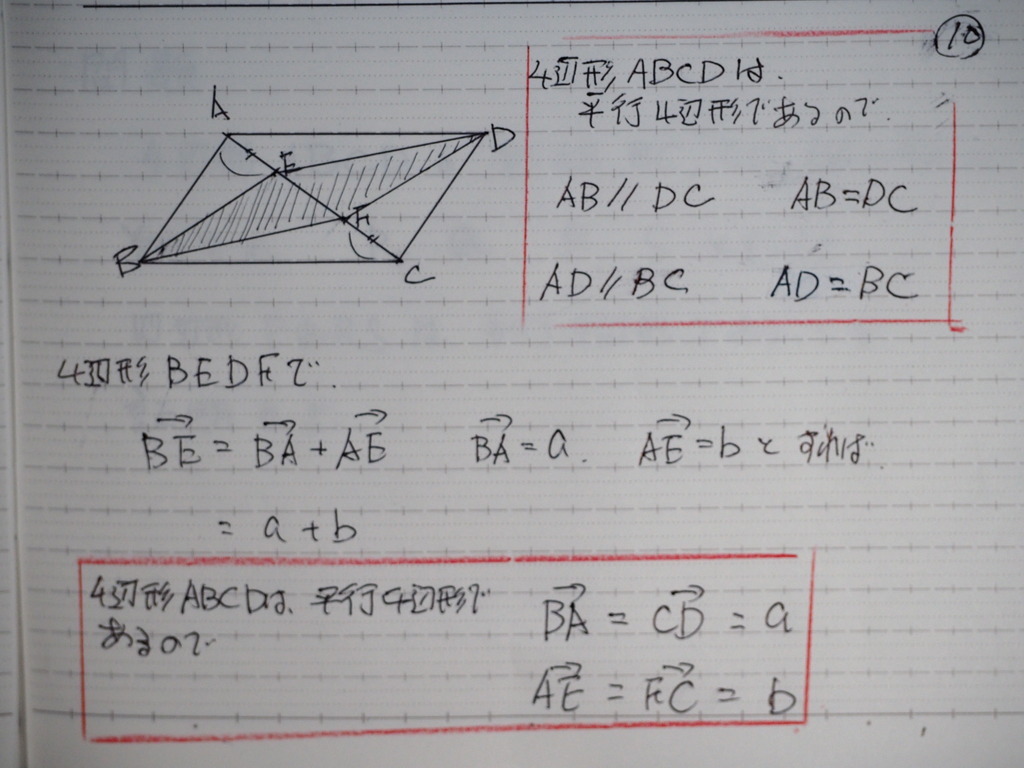 ⑩
A
D
E
F
B
C
4辺形ABCDは、
平行4辺形であるので、
AB // DC AB=DC
AD // BC AD=BC
4辺形BEDFで、
BE→ = BA→ + AE→ BA→ = a. AE→ = b とすれば、
= a + b
4辺形ABCDは、平行4辺形で
あるので
BA→ = CD→ = a
AE→ = FC→ = b